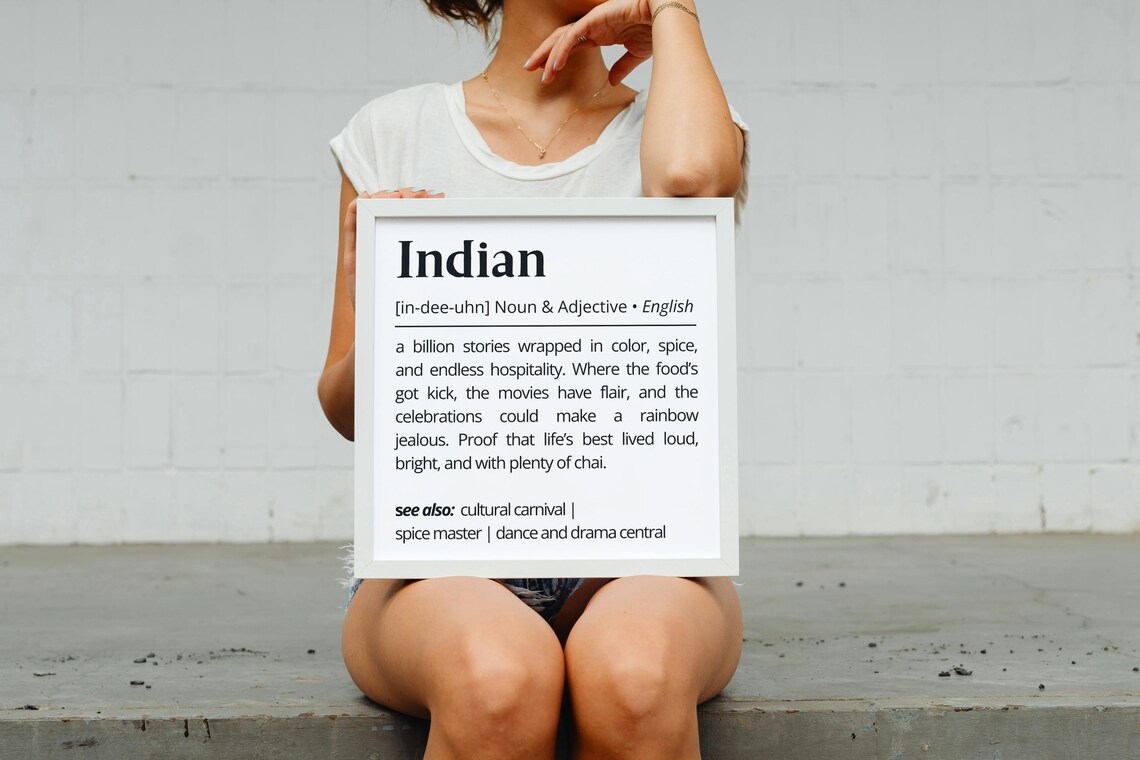 Indian
[in-dee-uhn] Noun & Adjective • English
a billion stories wrapped in color, spice,
and endless hospitality. Where the food’s
got kick, the movies have flair, and the
celebrations could make a rainbow
jealous. Proof that life’s best lived loud,
bright, and with plenty of chai.
see also: cultural carnival |
spice master | dance and drama central